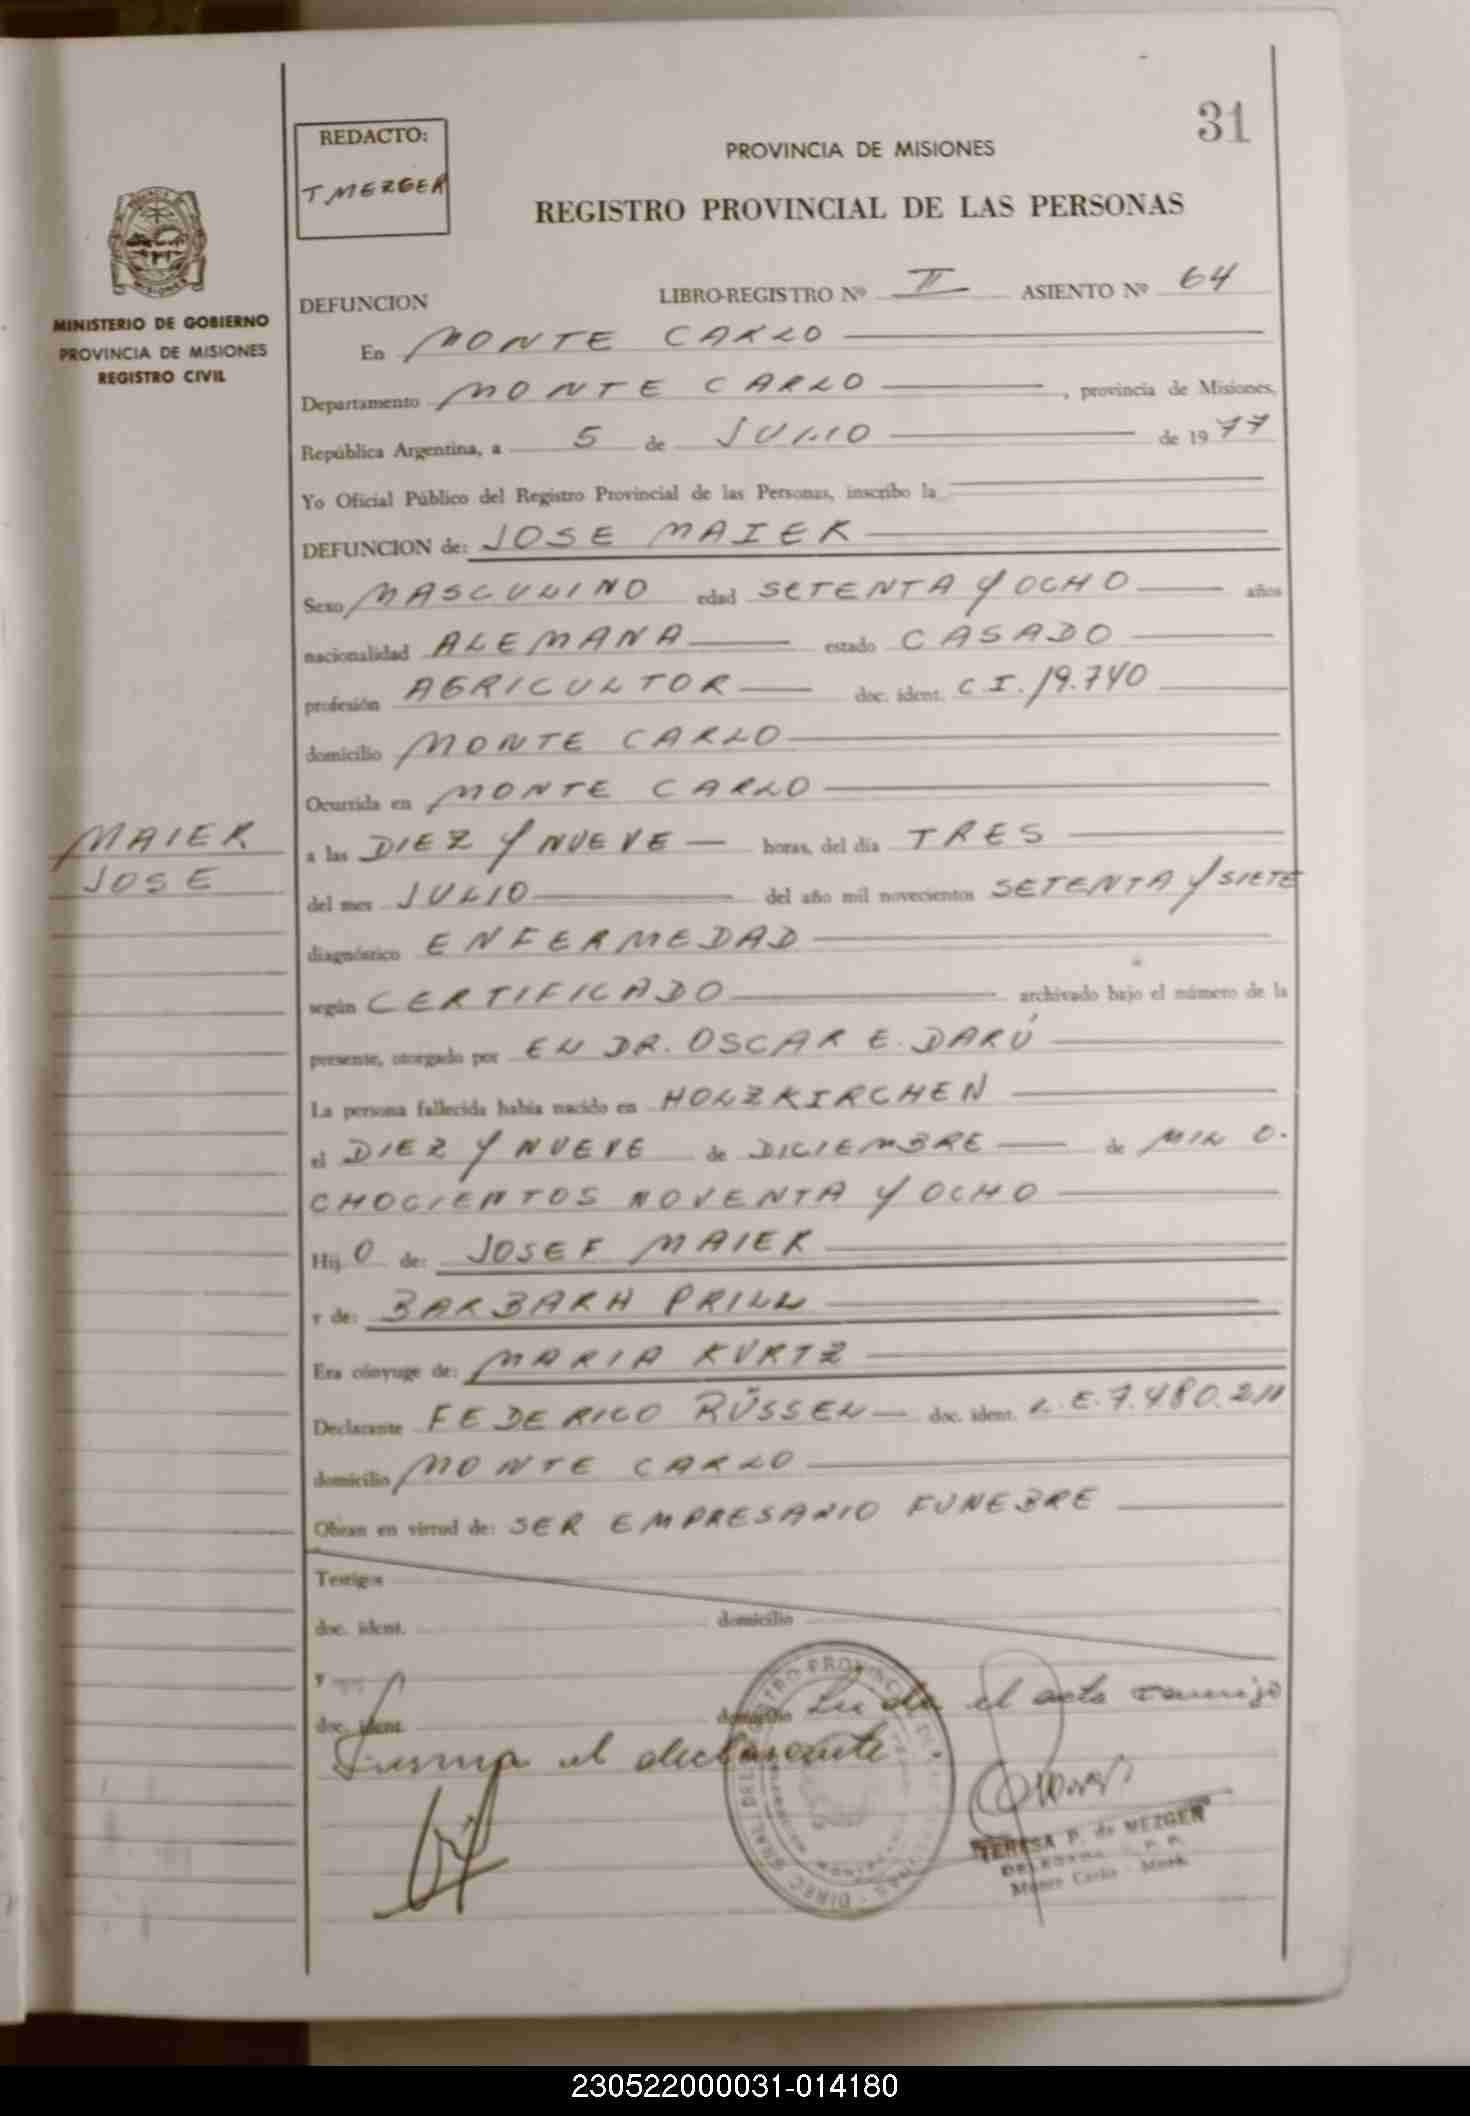 31
REDACTO:
T MEZGER
PROVINCIA DE MISIONES
REGISTRO PROVINCIAL DE LAS PERSONAS
MINISTERIO DE GOBIERNO
PROVINCIA DE MISIONES
REGISTRO CIVIL
DEFUNCION LIBRO-REGISTRO Nº II ASIENTO Nº 64
En MONTE CARLO
Departamento MONTE CARLO, provincia de Misiones,
República Argentina, a 5 de JULIO de 1977
Yo Oficial Público del Registro Provincial de las Personas, inscribo la
DEFUNCION de: JOSE MAIER
Sexo MASCULINO edad SETENTA Y OCHO años
nacionalidad ALEMANA estado CASADO
profesión AGRICULTOR doc. ident. C I. 19.740
domicilio MONTE CARLO
Ocurrida en MONTE CARLO
MAIER
JOSE
a las DIEZ Y NUEVE horas, del día TRES
del mes JULIO del año mil novecientos SETENTA Y SIETE
diagnóstico ENFERMEDAD
según CERTIFICADO archivado bajo el número de la
presente, otorgado por EL DR. OSCAR E. DARÚ
La persona fallecida había nacido en HOLZKIRCHEN
el DIEZ Y NUEVE de DICIEMBRE de MIL O-
CHOCIENTOS NOVENTA Y OCHO
Hij O de: JOSEF MAIER
y de: BARBARA PRILL
Era cónyuge de: MARIA KURTZ
Declarante FEDERICO RÜSSEL doc. ident. L. E. 7.480.211
domicilio MONTE CARLO
Obran en virtud de: SER EMPRESARIO FUNEBRE
Testigos
doc. ident. domicilio
y
doc. ident. domicilio Leída el acta conmigo
Firma el declarante
TERESA P. de MEZGER
DELEGADA R. P. P.
Monte Carlo - Mnes.
230522000031-014180